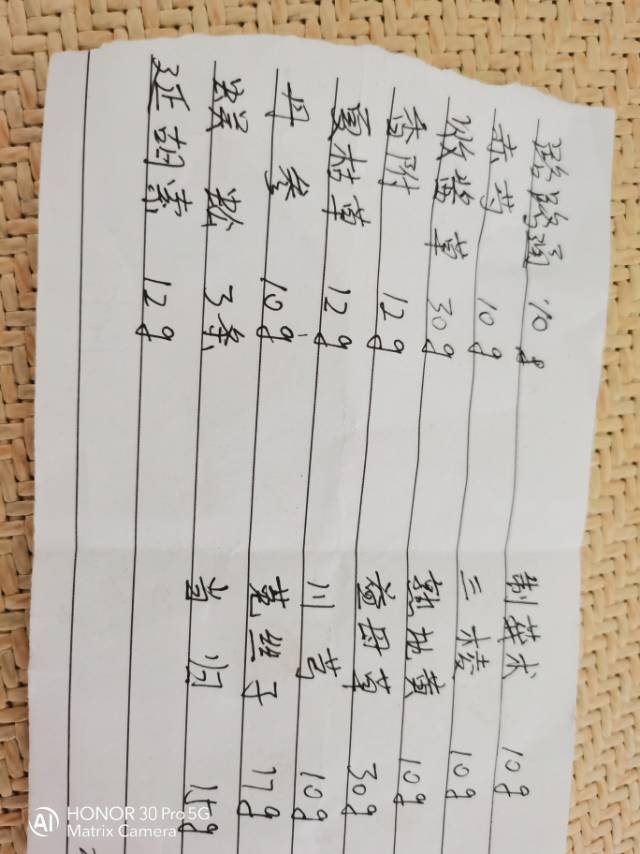 路路通 10g 制莪术 10g
赤芍 10g 三棱 10g
败酱草 30g 熟地黄 10g
香附 12g 益母草 30g
夏枯草 12g 川芎 10g
丹参 10g 菟丝子 17g
蜈蚣 3条 当归 15g
延胡索 12g
HONOR 30 Pro 5G
Matrix Camera
AI